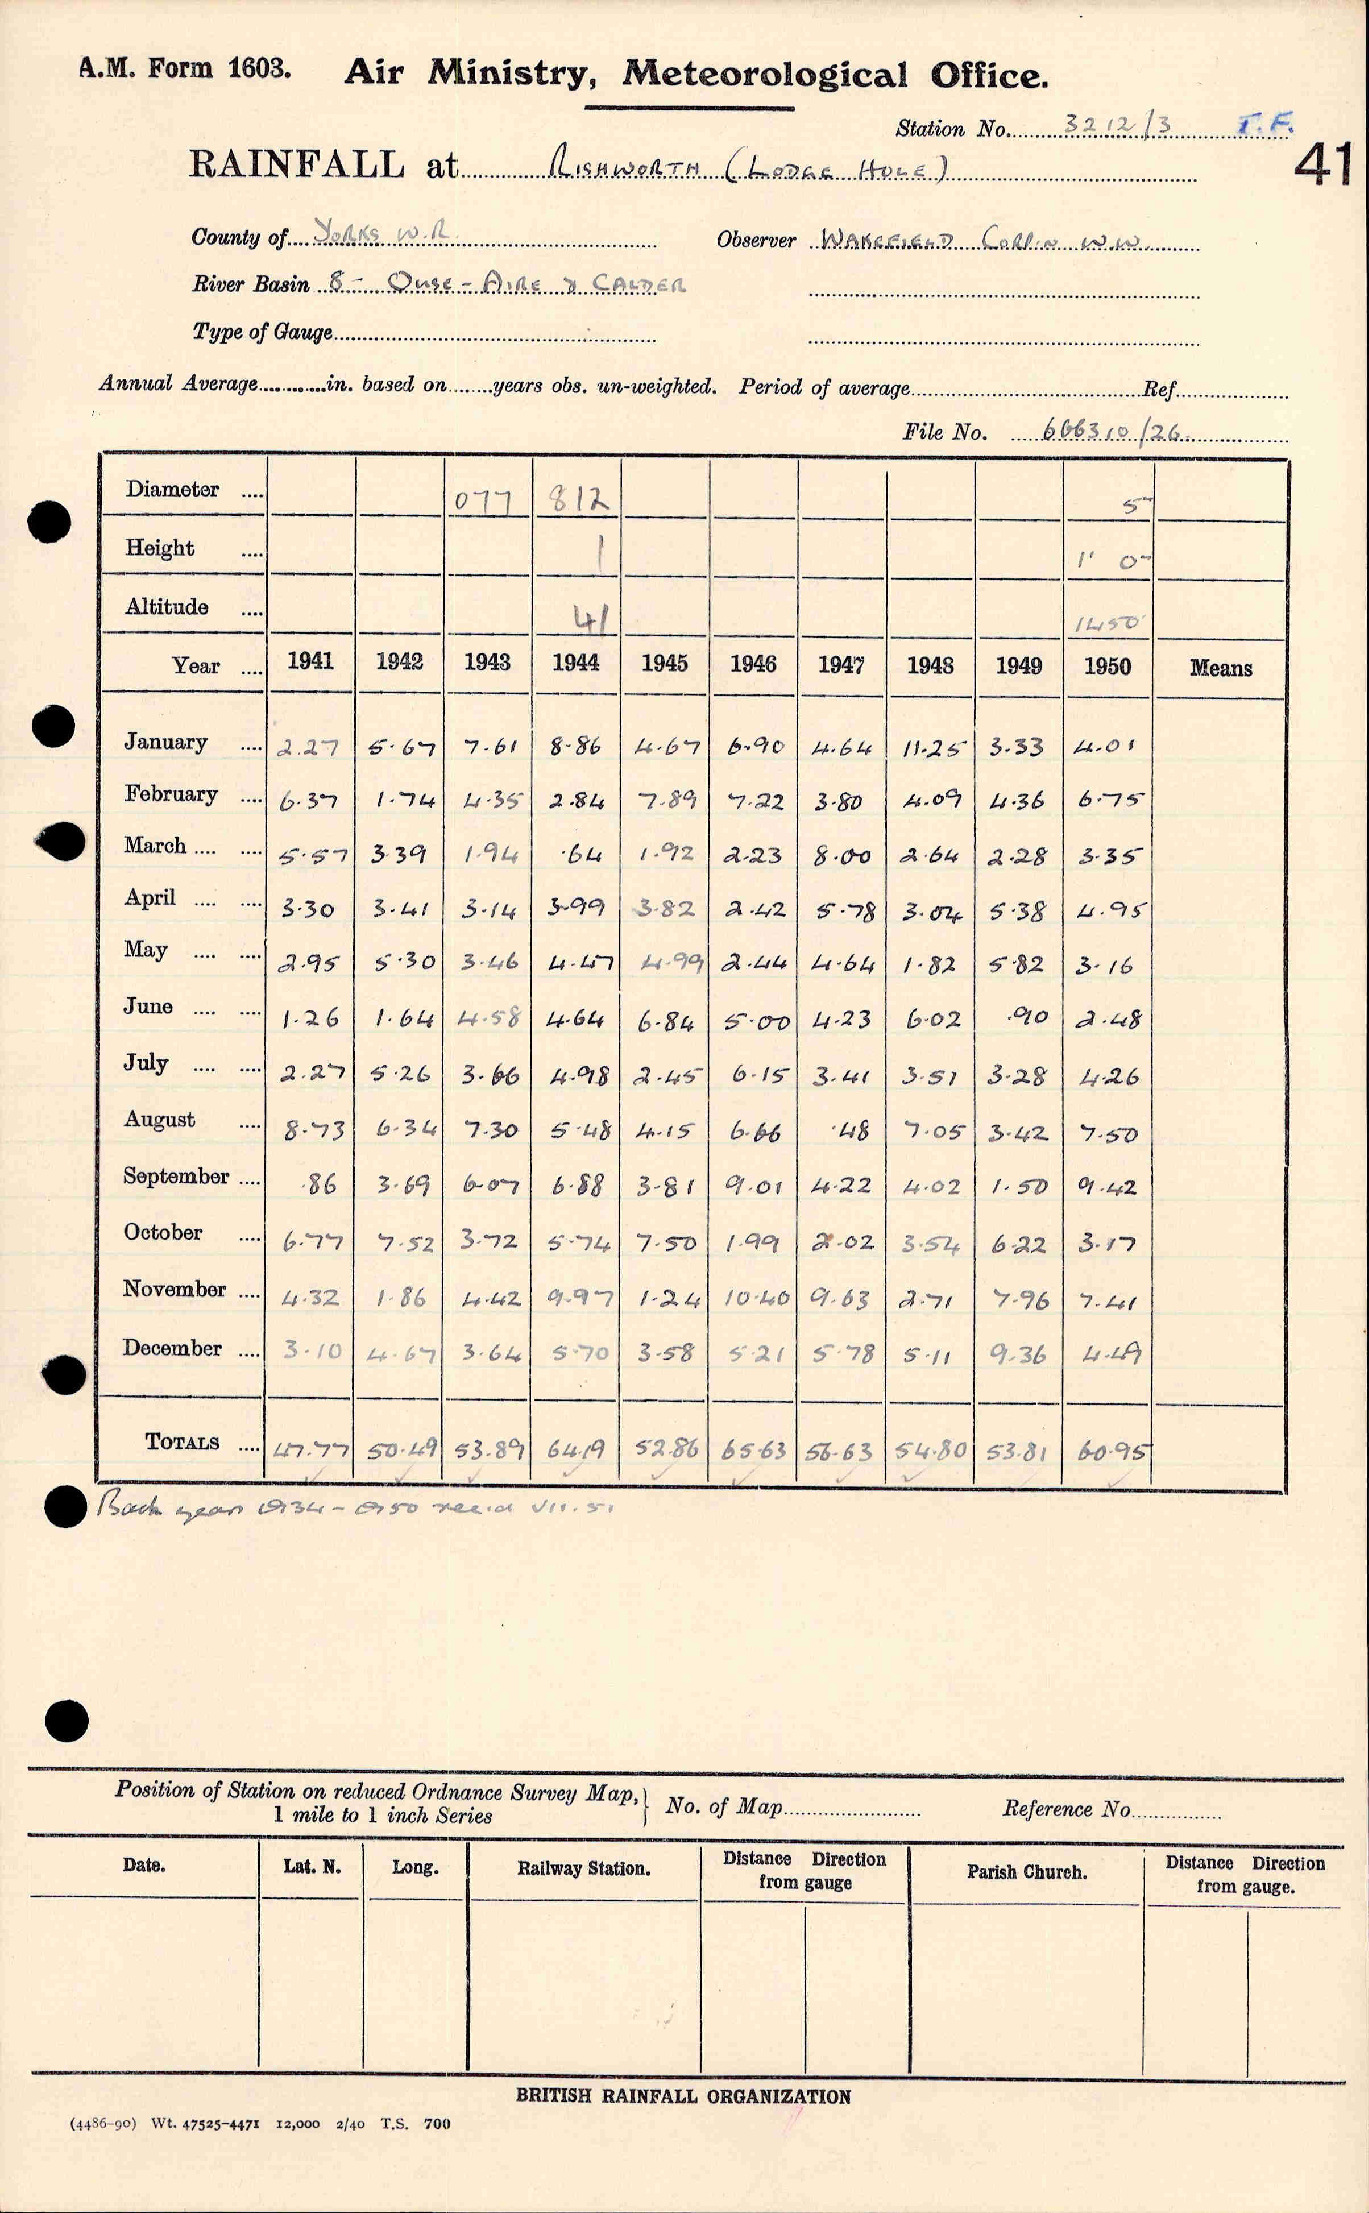 A.M. Form 1603. Air Ministry, Meteorological Office.
Station No. 3212/3 T.F.
41
RAINFALL at RISHWORTH (LODGE HOLE)
County of YORKS W.R. Observer WAKEFIELD CORP.N W.W.
River Basin 8 - OUSE - AIRE & CALDER
Type of Gauge
Annual Average in. based on years obs. un-weighted. Period of average Ref.
File No. 606310/26
Diameter 077 812 5"
Height 1 1' 0"
Altitude 41 1450'
Year 1941 1942 1943 1944 1945 1946 1947 1948 1949 1950 Means
January 2.27 5.67 7.61 8.86 4.67 6.90 4.64 11.25 3.33 4.01
February 6.37 1.74 4.35 2.84 7.89 7.22 3.80 4.09 4.36 6.75
March 5.57 3.39 1.94 .64 1.92 2.23 8.00 2.64 2.28 3.35
April 3.30 3.41 3.14 3.99 3.82 2.42 5.78 3.04 5.38 4.95
May 2.95 5.30 3.46 4.47 4.99 2.44 4.64 1.82 5.82 3.16
June 1.26 1.64 4.58 4.64 6.84 5.00 4.23 6.02 .90 2.48
July 2.27 5.26 3.66 4.98 2.45 6.15 3.41 3.51 3.28 4.26
August 8.73 6.34 7.30 5.48 4.15 6.66 .48 7.05 3.42 7.50
September .86 3.69 6.07 6.88 3.81 9.01 4.22 4.02 1.50 9.42
October 6.77 7.52 3.72 5.74 7.50 1.99 2.02 3.54 6.22 3.17
November 4.32 1.86 4.42 9.97 1.24 10.40 9.63 2.71 7.96 7.41
December 3.10 4.67 3.64 5.70 3.58 5.21 5.78 5.11 9.36 4.49
TOTALS 47.77 50.49 53.89 64.19 52.86 65.63 56.63 54.80 53.81 60.95
Back years 1934 - 1950 rec'd VII.51
Position of Station on reduced Ordnance Survey Map, No. of Map Reference No.
1 mile to 1 inch Series
Date. Lat. N. Long. Railway Station. Distance Direction from gauge Parish Church. Distance Direction from gauge.
BRITISH RAINFALL ORGANIZATION
(4486-90) Wt. 47525-4471 12,000 2/40 T.S. 700